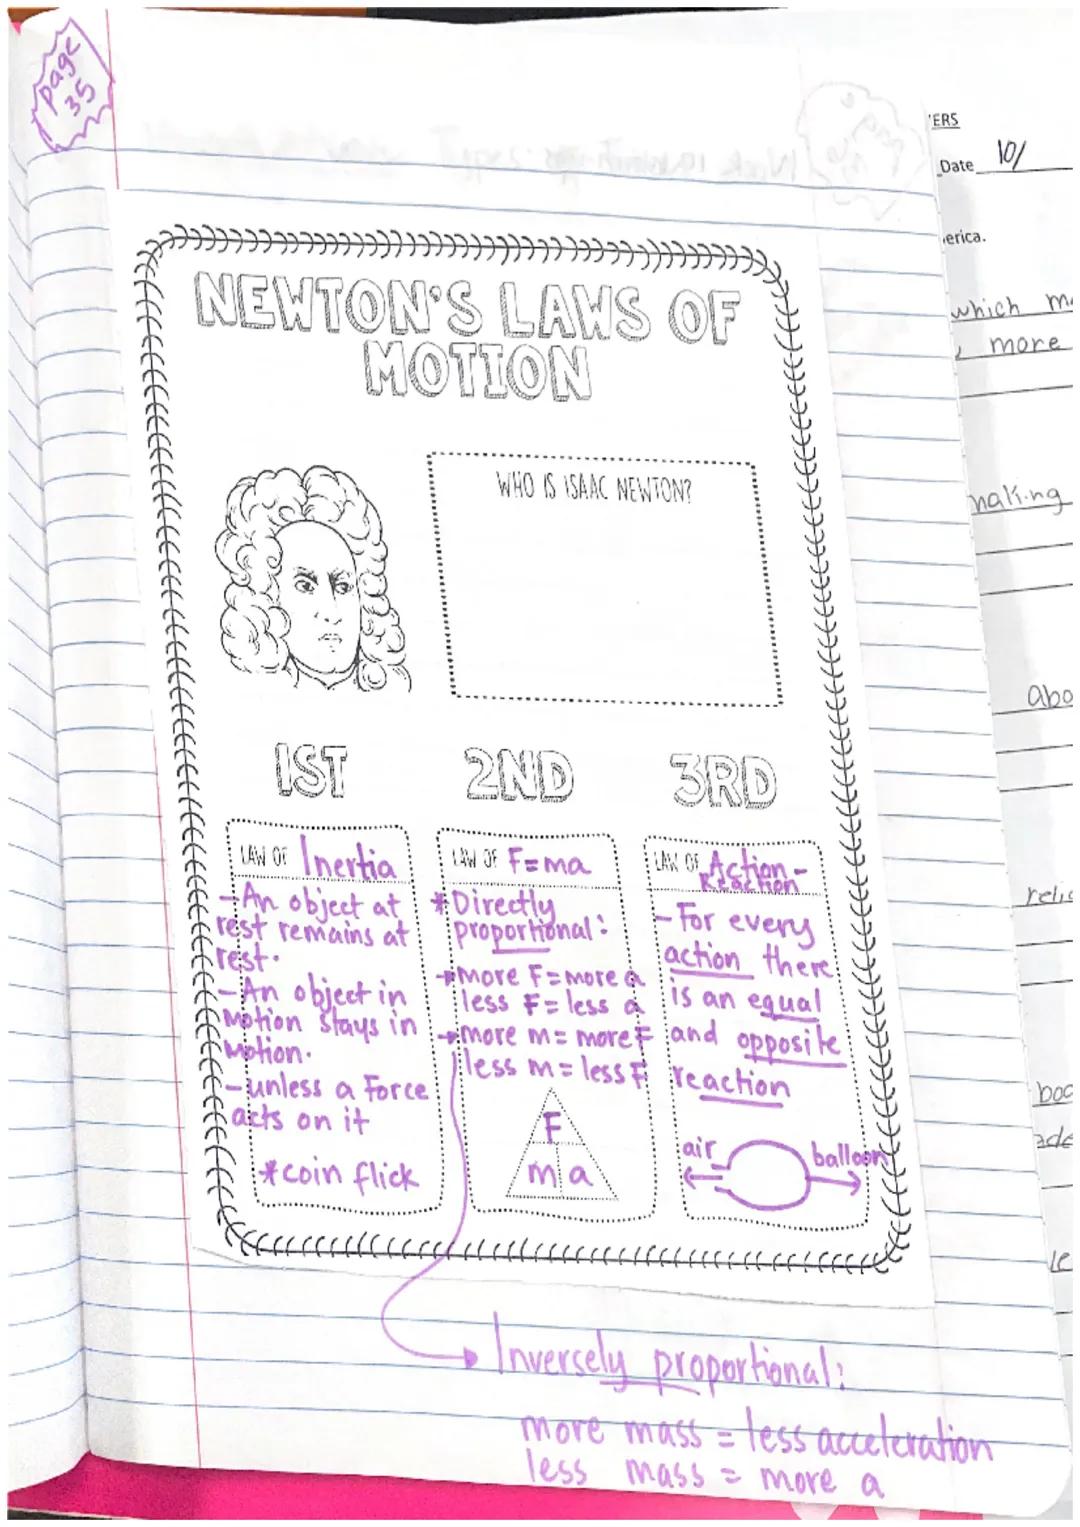 page
35
'ERS
Date 10/
erica.
which
more
making
NEWTON'S LAWS OF
MOTION
WHO IS ISAAC NEWTON?
1ST
LAW OF Inertia
-An object at
rest remains at
rest.
-An object in
Motion stays in
Motion.
-unless a Force
acts on it
*coin flick
2ND
LAW OF F=ma
*Directly
proportional:
→more F=more a
less F=less a
→more m=more F
less m=less F
F
m a
3RD
LAW OF Action-
Reaction
-For every
action there
is an equal
and opposite
reaction
air
balloon
Inversely proportional:
more mass = less acceleration
less mass = more a